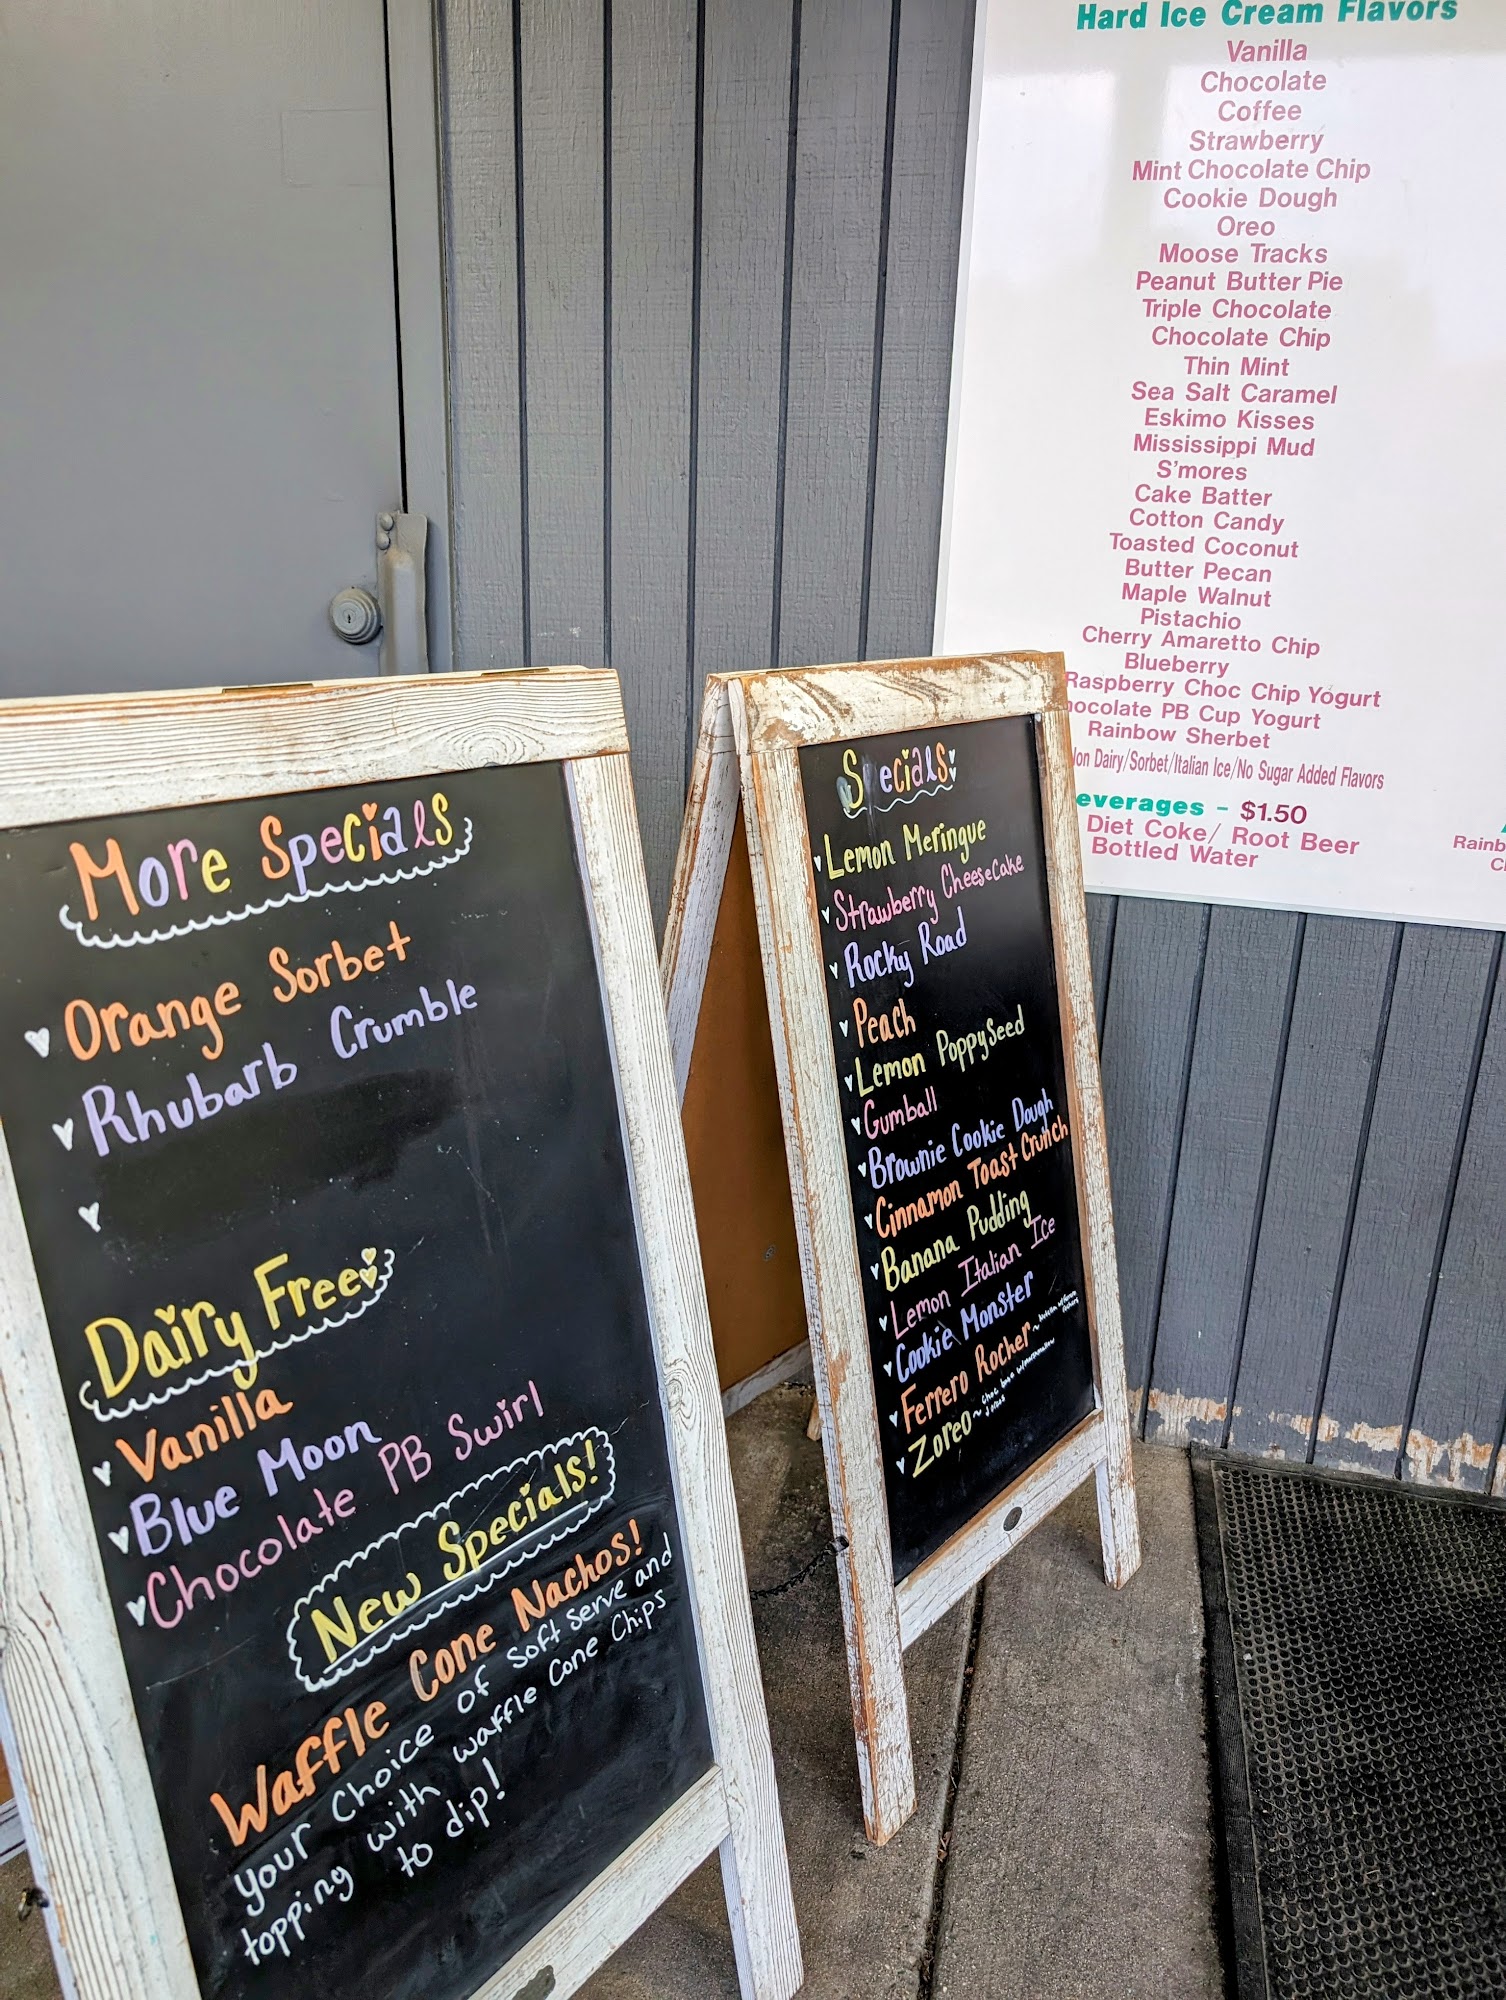 More Specials
Orange Sorbet
Rhubarb Crumble
Dairy Free
Vanilla
Blue Moon
Chocolate PB Swirl
New Specials!
Waffle Cone Nachos!
your Choice of soft serve and
topping with waffle cone chips
to dip!
Specials
Lemon Meringue
Strawberry Cheesecake
Rocky Road
Peach
Lemon PoppySeed
Gumball
Brownie Cookie Dough
Cinnamon Toast Crunch
Banana Pudding
Lemon Italian Ice
Cookie Monster
Ferrero Rocher~
Zoreo~ choc base w/marshmallow
Hard Ice Cream Flavors
Vanilla
Chocolate
Coffee
Strawberry
Mint Chocolate Chip
Cookie Dough
Oreo
Moose Tracks
Peanut Butter Pie
Triple Chocolate
Chocolate Chip
Thin Mint
Sea Salt Caramel
Eskimo Kisses
Mississippi Mud
S'mores
Cake Batter
Cotton Candy
Toasted Coconut
Butter Pecan
Maple Walnut
Pistachio
Cherry Amaretto Chip
Blueberry
Raspberry Choc Chip Yogurt
hocolate PB Cup Yogurt
Rainbow Sherbet
on Dairy/Sorbet/Italian Ice/No Sugar Added Flavors
everages - $1.50
Diet Coke/ Root Beer
Bottled Water
Rainb